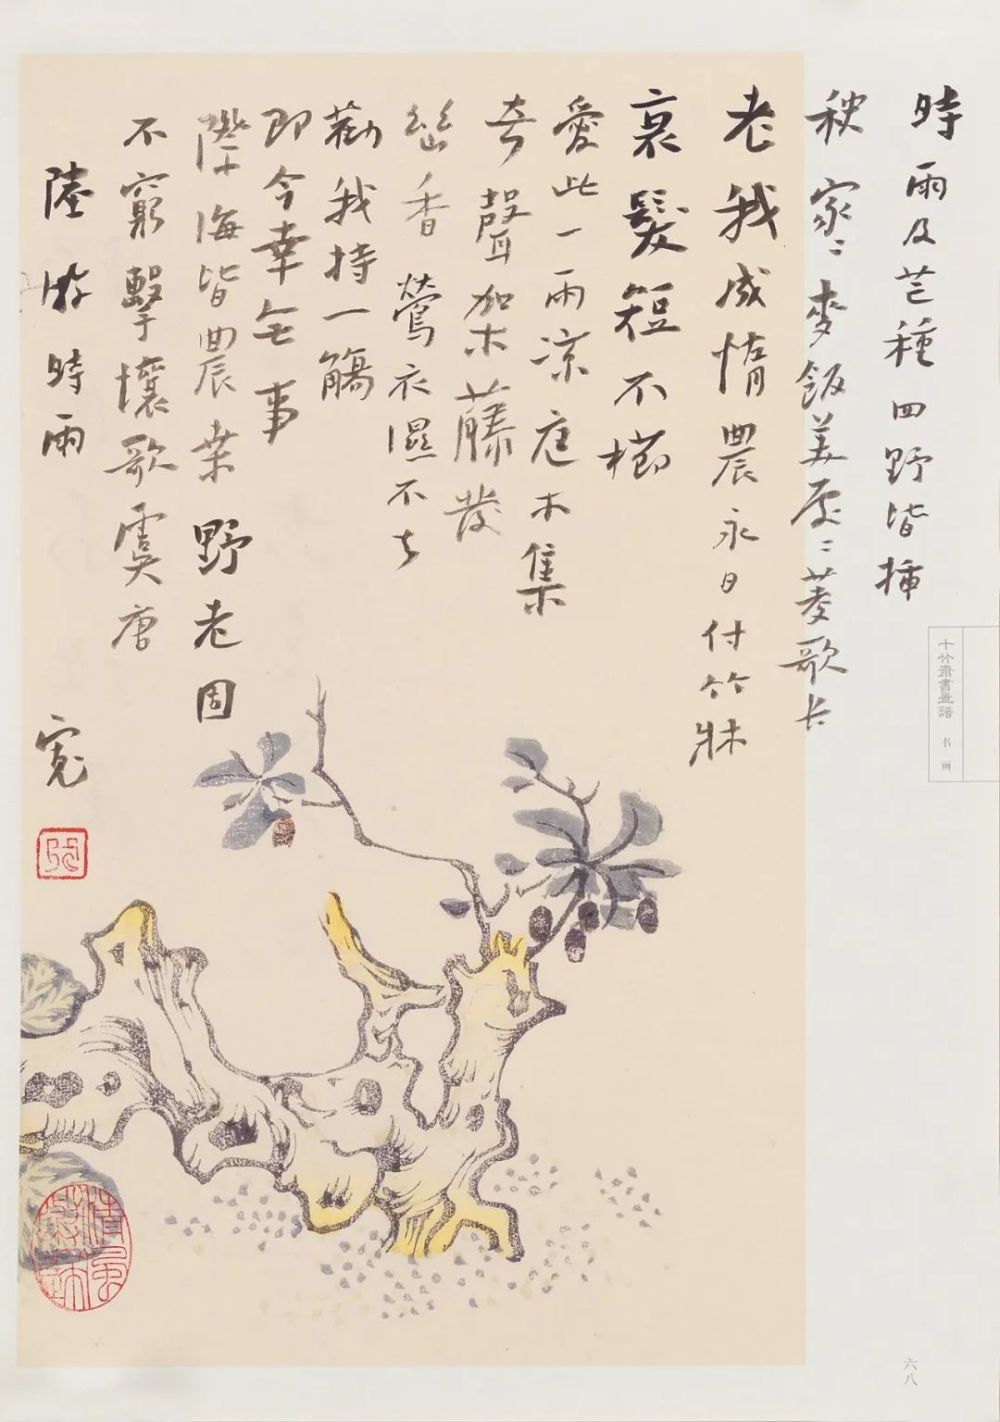 時雨及芒種四野皆插
秧家〻麥飯美處〻菱歌长
老我成惰農永日付竹牀
衰髮短不櫛
愛此一雨涼庭木集
奇聲架藤發
幽香鶯衣濕不去
勸我持一觴
即今幸无事
際海皆農桒野老固
不窮擊壤歌虞唐
陸游時雨 寬
十竹齋書畫譜 书画
六八